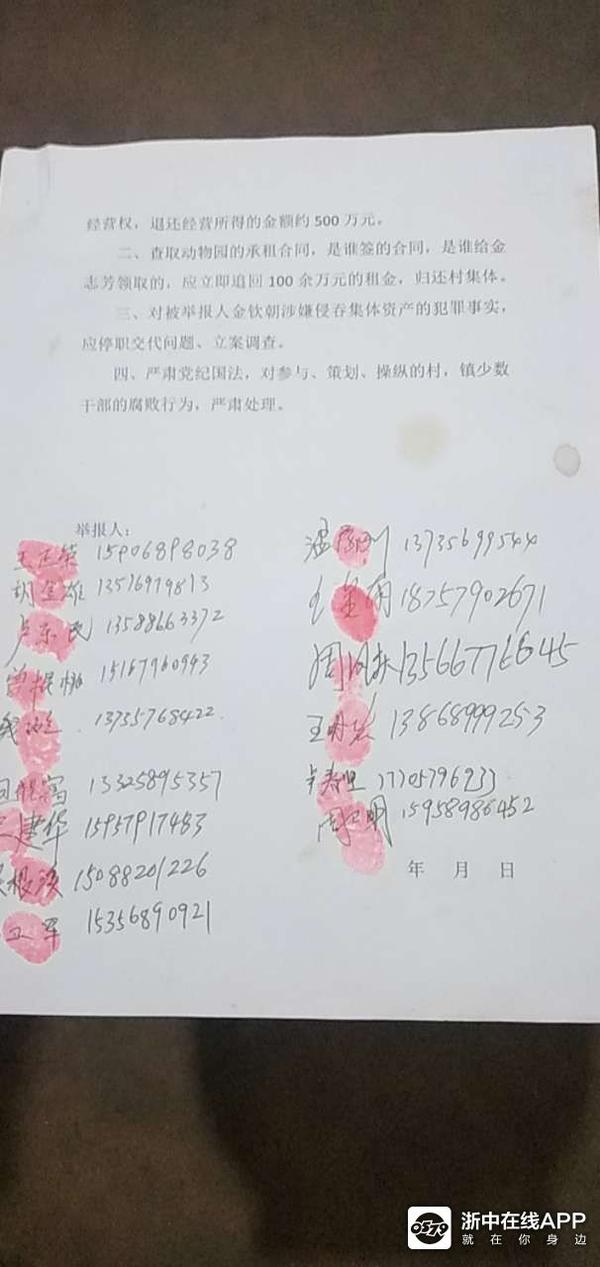 经营权，退还经营所得的金额约 500 万元。
二、查取动物园的承租合同，是谁签的合同，是谁给金
志芳领取的，应立即追回 100 余万元的租金，归还村集体。
三、对被举报人金钦朝涉嫌侵吞集体资产的犯罪事实，
应停职交代问题、立案调查。
四、严肃党纪国法，对参与、策划、操纵的村，镇少数
干部的腐败行为，严肃处理。
举报人：
15906898038
胡金雄 13516979813
卢东民 13588663372
15167960943
13735768422
13325895357
建华 15957917483
根 15088201226
卫军 15356890921
13735699544
18757902671
周 13566776645
王明 13868999253
寿 17705796933
周卫明 15958986452
年 月 日
0579
浙中在线APP
就在你身边